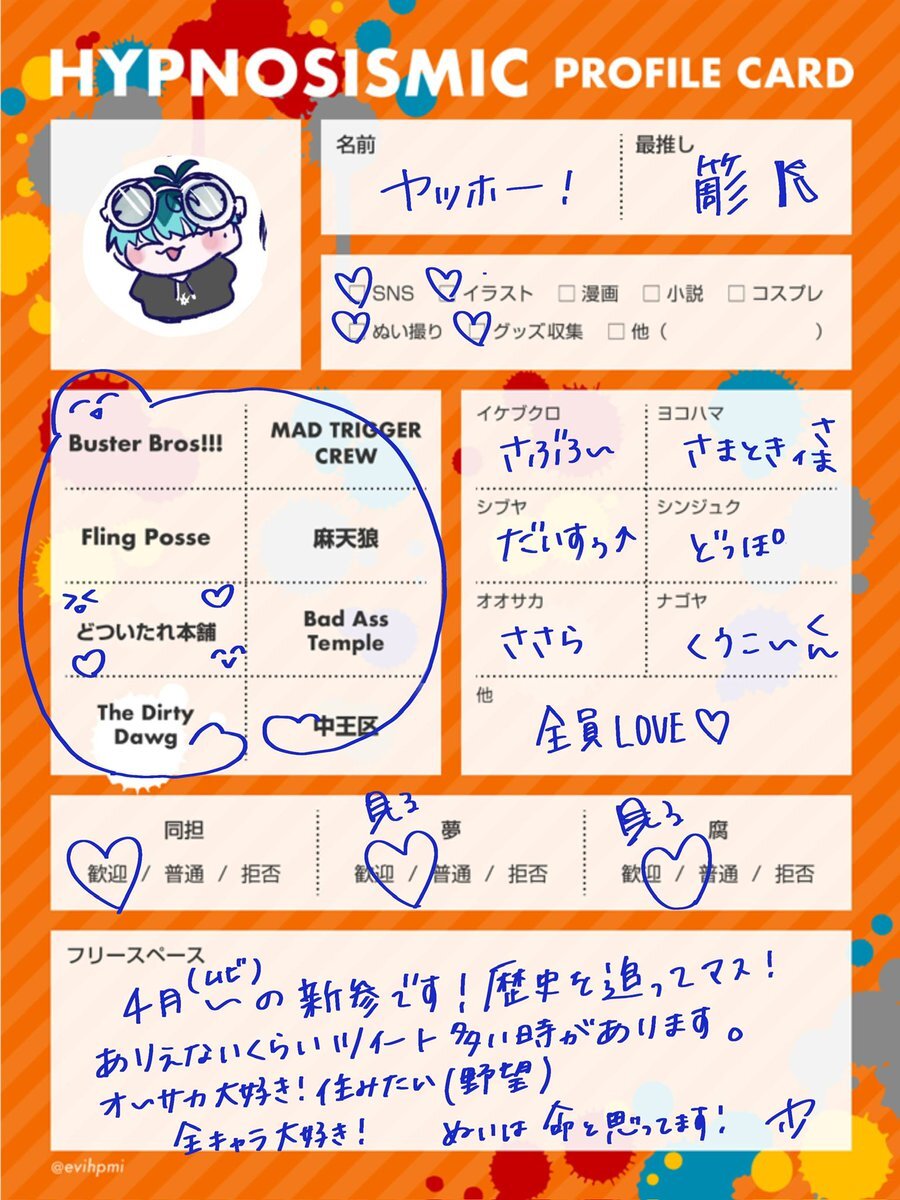 HYPNOSISMIC PROFILE CARD
名前
ヤッホー！
最推し
簓
SNS イラスト 漫画 小説 コスプレ
ぬい撮り グッズ収集 他（ ）
Buster Bros!!!
MAD TRIGGER
CREW
Fling Posse
麻天狼
どついたれ本舗
Bad Ass
Temple
The Dirty
Dawg
中王区
イケブクロ
さぶろー
ヨコハマ
さまときさま様
シブヤ
だいすぅ↑
シンジュク
どっぽ
オオサカ
ささら
ナゴヤ
くうこーくん
他
全員LOVE♡
同担
歓迎 / 普通 / 拒否
見る
夢
歓迎 / 普通 / 拒否
見る
腐
歓迎 / 普通 / 拒否
フリースペース
4月(ムビ)〜の新参です！歴史を追ってマス！
ありえないくらいツイート多い時があります。
オーサカ大好き！住みたい(野望)
全キャラ大好き！ ぬいは命と思ってます！
@evihpmi